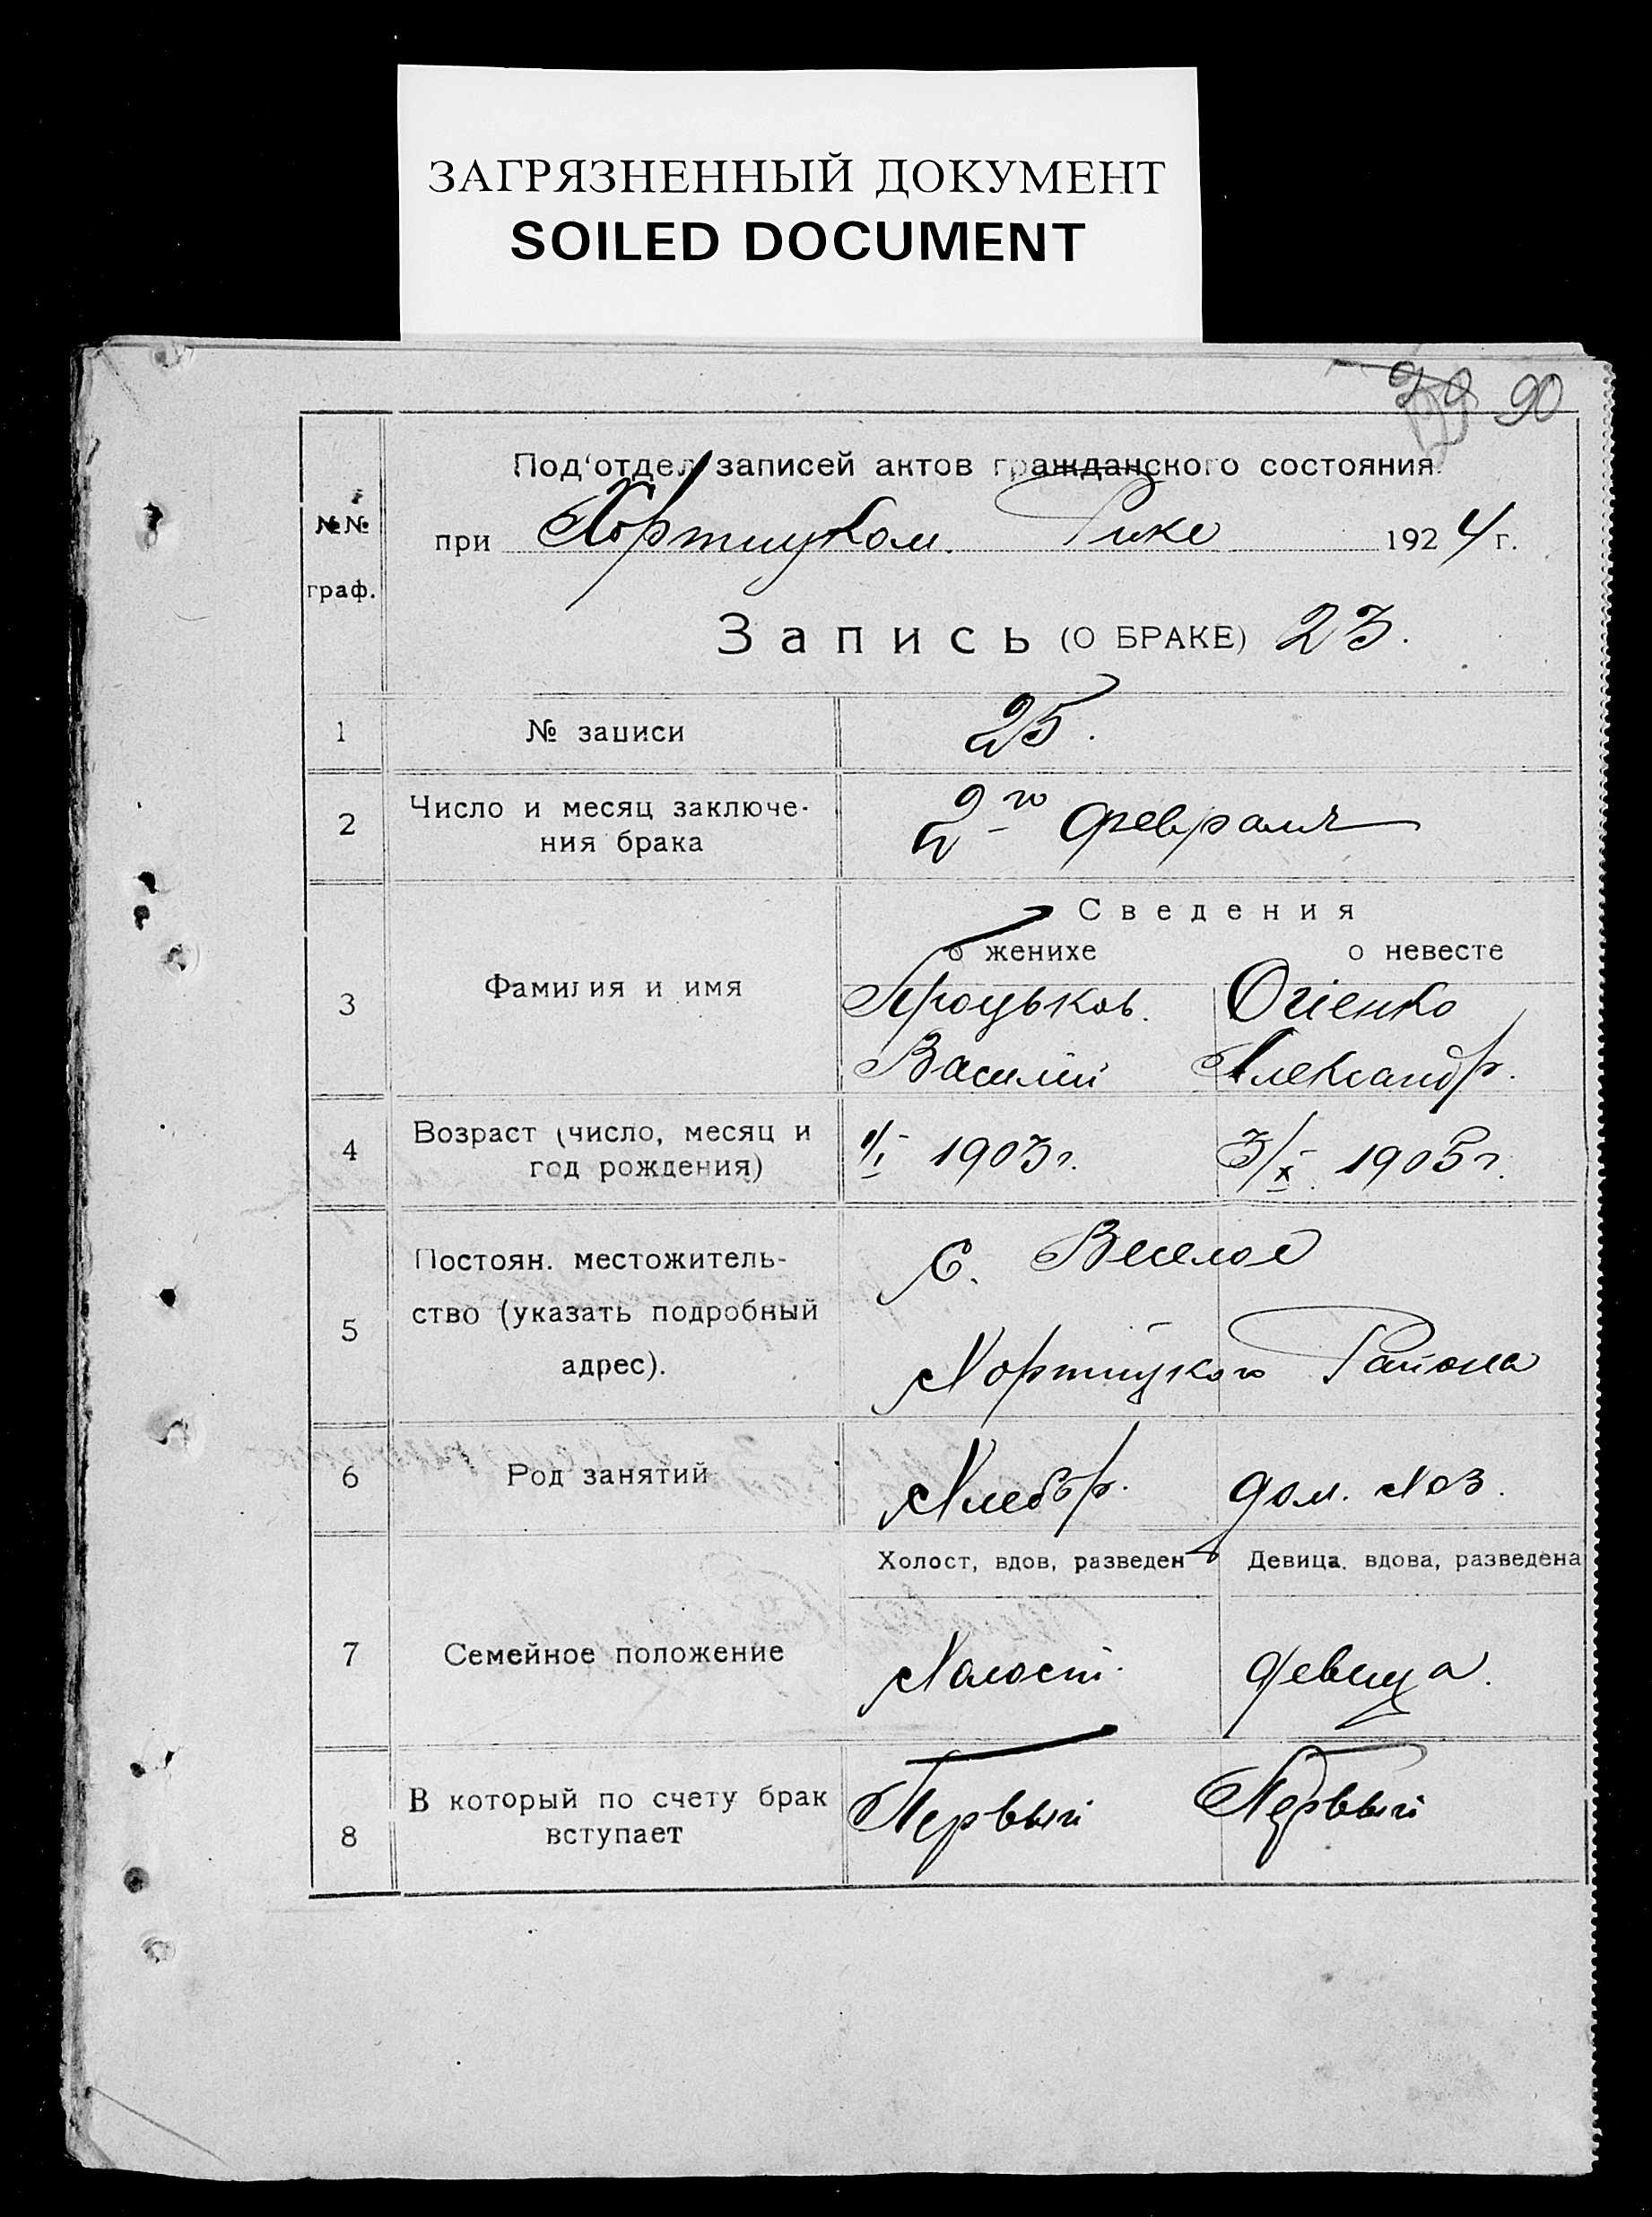 ЗАГРЯЗНЕННЫЙ ДОКУМЕНТ
SOILED DOCUMENT
90
№№ граф.
Под'отдел записей актов гражданского состояния
при Хортицком. Рике 1924 г.
Запись (О БРАКЕ) 23.
1 № записи 25.
2 Число и месяц заключе-
ния брака 2го февраля
Сведения
о женихе о невесте
3 Фамилия и имя Процьков. Огіенко
Василий Александр.
4 Возраст (число, месяц и
год рождения) 1/I 1903 г. 3/X 1905 г.
5 Постоян. местожитель-
ство (указать подробный
адрес).
С. Веселое
Хортицкого Района
6 Род занятий Хлебор. дом. хоз.
Холост, вдов, разведен Девица, вдова, разведена
7 Семейное положение Холост. девица.
8 В который по счету брак
вступает Первый Первый